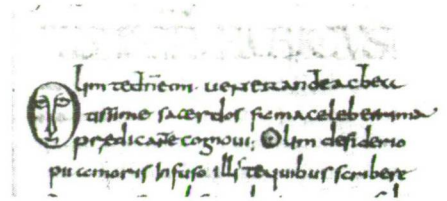 Olim te dñe mi uenerande ac bea
tissime sacerdos fama celeberrima
predicante cognoui; Olim desiderio
pii amoris infuso illis te quibus scribere